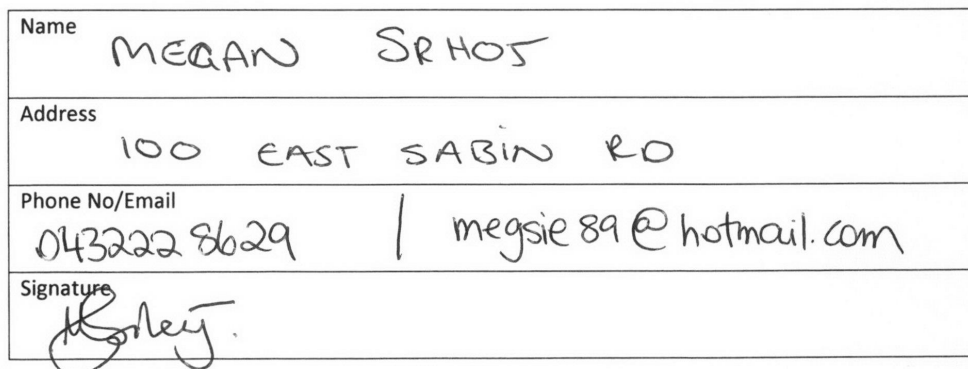 Name
MEGAN SRHOJ
Address
100 EAST SABIN RD
Phone No/Email
0432228629 | megsie89@hotmail.com
Signature